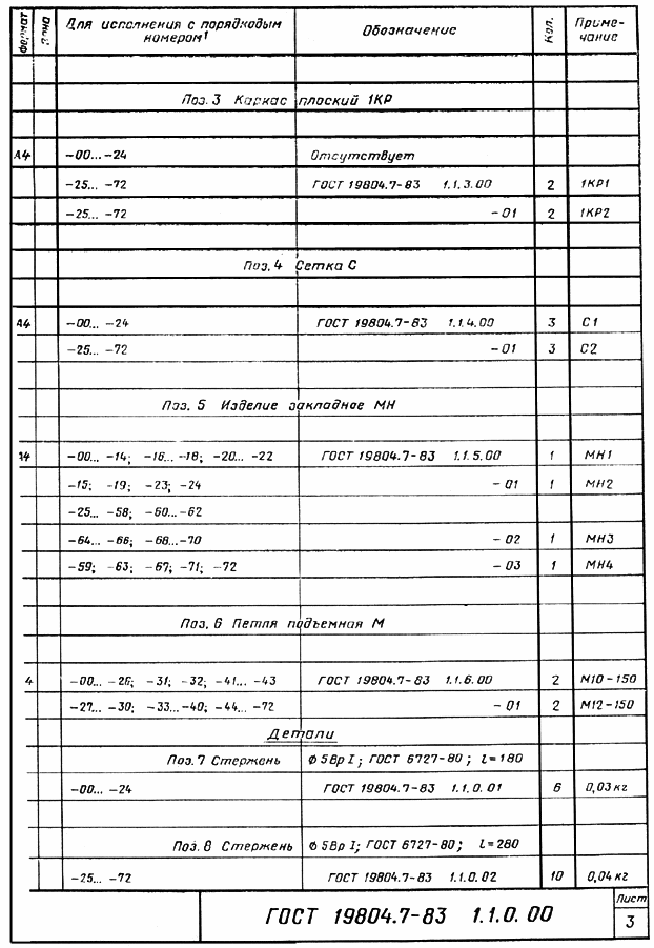 Формат Зона Для исполнения с порядковым номером¹ Обозначение Кол. Примечание
Поз. 3 Каркас плоский 1КР
А4 -00... -24 Отсутствует
-25... -72 ГОСТ 19804.7-83 1.1.3.00 2 1КР1
-25... -72 -01 2 1КР2
Поз. 4 Сетка С
А4 -00... -24 ГОСТ 19804.7-83 1.1.4.00 3 С1
-25... -72 -01 3 С2
Поз. 5 Изделие закладное МН
А4 -00... -14; -16... -18; -20... -22 ГОСТ 19804.7-83 1.1.5.00 1 МН1
-15; -19; -23; -24 -01 1 МН2
-25... -58; -60...-62
-64... -66; -68...-70 -02 1 МН3
-59; -63; -67; -71; -72 -03 1 МН4
Поз. 6 Петля подъемная М
4 -00... -26; -31; -32; -41... -43 ГОСТ 19804.7-83 1.1.6.00 2 М10-150
-27... -30; -33...-40; -44... -72 -01 2 М12-150
Детали
Поз. 7 Стержень Ф 5Вр I; ГОСТ 6727-80; l=180
-00... -24 ГОСТ 19804.7-83 1.1.0.01 6 0,03кг
Поз. 8 Стержень Ф 5Вр I; ГОСТ 6727-80; l=280
-25... -72 ГОСТ 19804.7-83 1.1.0.02 10 0,04кг
ГОСТ 19804.7-83 1.1.0.00
Лист
3